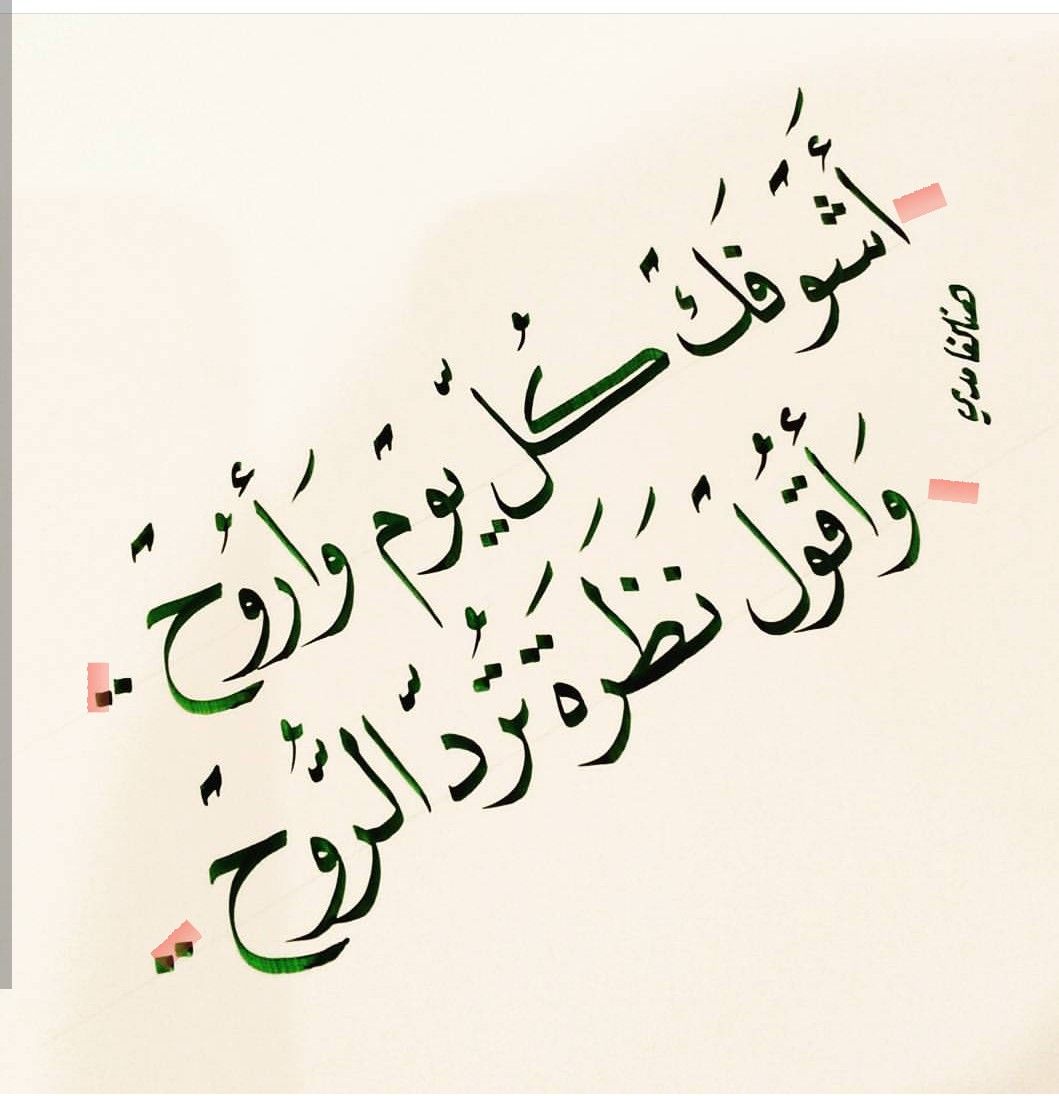 أَشوْفَكْ كُلّ يوْم وَأَرُوحْ ..
وَأَقُولْ نَظْرَه تَرُدّ الرُّوحْ ..
هنا الغامدي